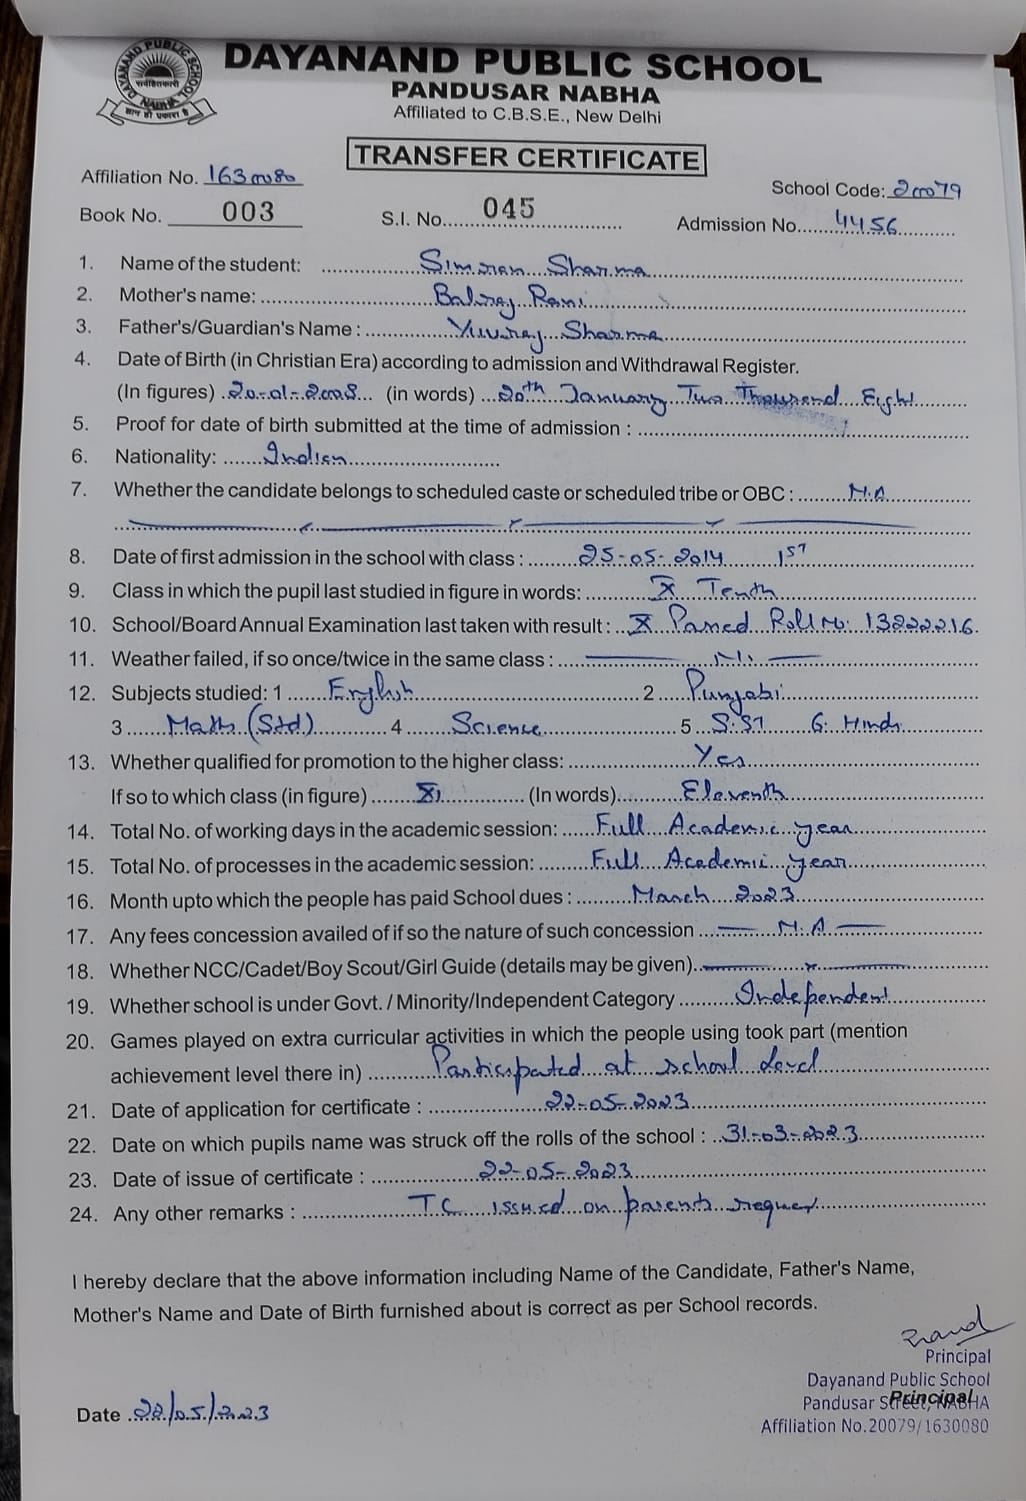 DAYANAND PUBLIC SCHOOL
PANDUSAR NABHA
Affiliated to C.B.S.E., New Delhi
TRANSFER CERTIFICATE
Affiliation No. 1630080
School Code: 20079
Book No. 003 S.I. No. 045 Admission No. 4456
1. Name of the student: Simran Sharma
2. Mother's name: Balraj Rani
3. Father's/Guardian's Name : Yuvraj Sharma
4. Date of Birth (in Christian Era) according to admission and Withdrawal Register.
(In figures) 20-01-2008 (in words) 20th January Two Thousend Eight
5. Proof for date of birth submitted at the time of admission :
6. Nationality: Indian
7. Whether the candidate belongs to scheduled caste or scheduled tribe or OBC : N.A
8. Date of first admission in the school with class : 25-05-2014 1ST
9. Class in which the pupil last studied in figure in words: X Tenth
10. School/Board Annual Examination last taken with result : X Passed Roll No: 13222216
11. Weather failed, if so once/twice in the same class :
12. Subjects studied: 1 English 2 Punjabi
3 Math (Std) 4 Science 5 S.ST 6. Hindi
13. Whether qualified for promotion to the higher class: Yes
If so to which class (in figure) XI (In words) Eleventh
14. Total No. of working days in the academic session: Full Academic year
15. Total No. of processes in the academic session: Full Academic year
16. Month upto which the people has paid School dues : March 2023
17. Any fees concession availed of if so the nature of such concession N.A
18. Whether NCC/Cadet/Boy Scout/Girl Guide (details may be given)
19. Whether school is under Govt. / Minority/Independent Category Independent
20. Games played on extra curricular activities in which the people using took part (mention
achievement level there in) Participated at school level
21. Date of application for certificate : 22-05-2023
22. Date on which pupils name was struck off the rolls of the school : 31-03-2023
23. Date of issue of certificate : 22-05-2023
24. Any other remarks : TC issued on parents request
I hereby declare that the above information including Name of the Candidate, Father's Name,
Mother's Name and Date of Birth furnished about is correct as per School records.
Principal
Dayanand Public School
Pandusar Street, NABHA
Principal
Affiliation No.20079/1630080
Date 22/05/2023